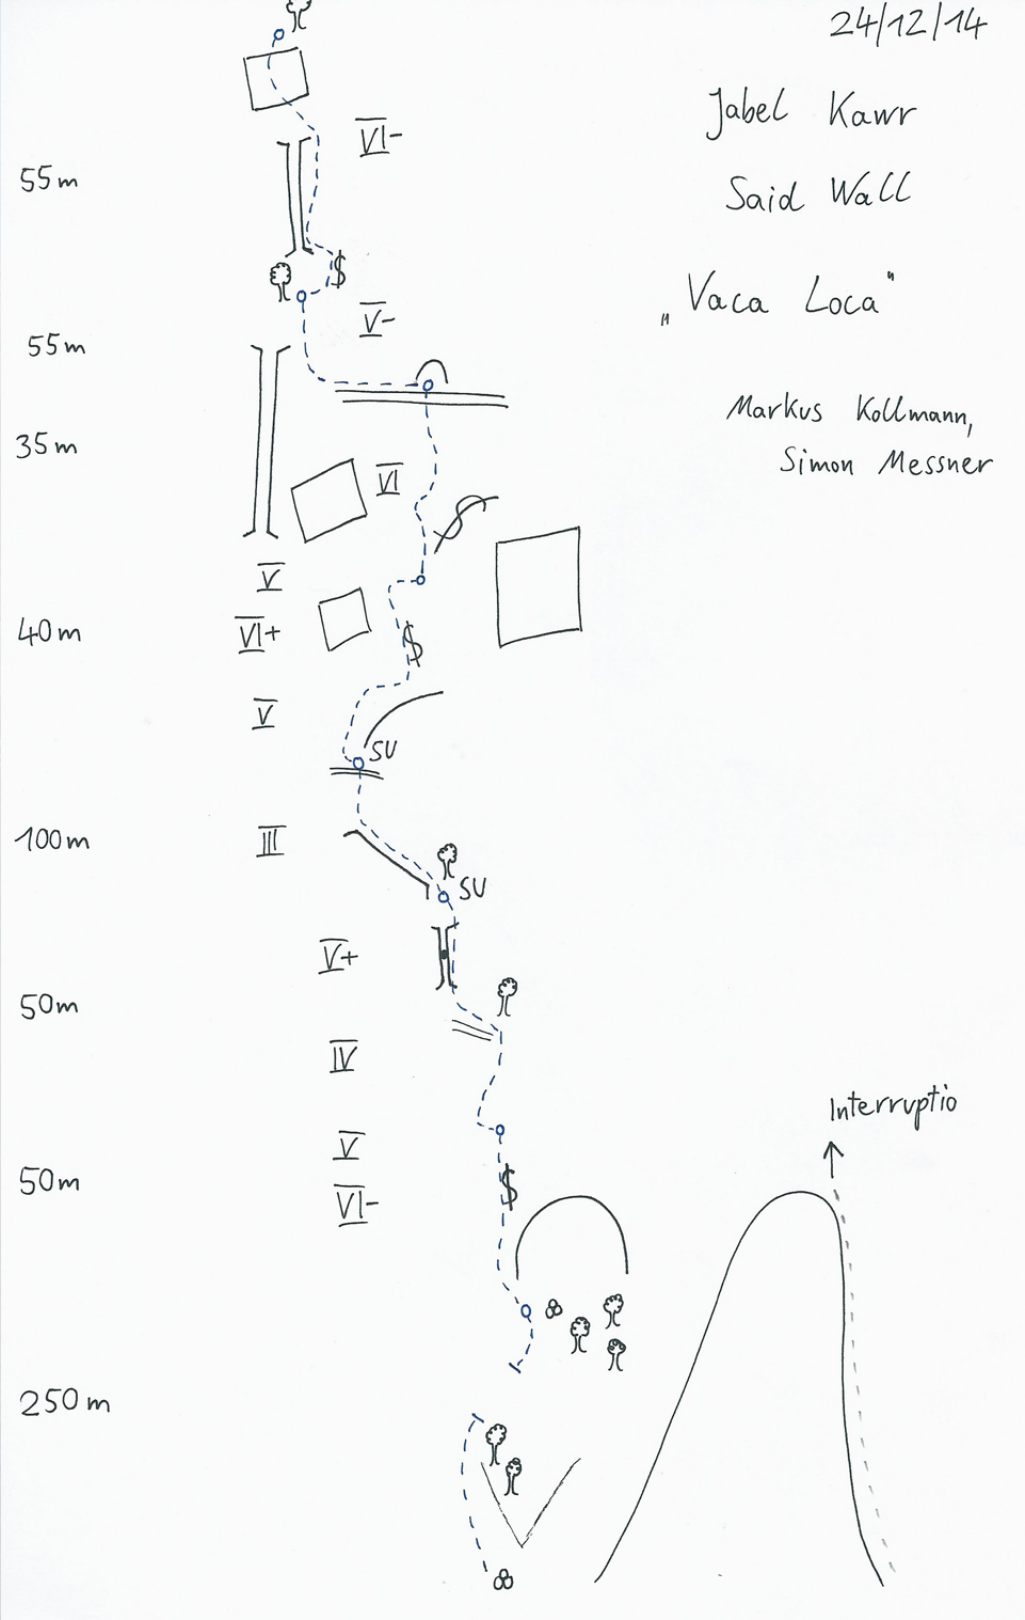 24/12/14
Jabel Kawr
Said Wall
„Vaca Loca"
Markus Kollmann,
Simon Messner
VI-
55m
$
V-
55m
35m
VI
V
VI+
40m
$
V
SU
100m
III
SU
V+
50m
IV
Interruptio
V
50m
$
VI-
250m